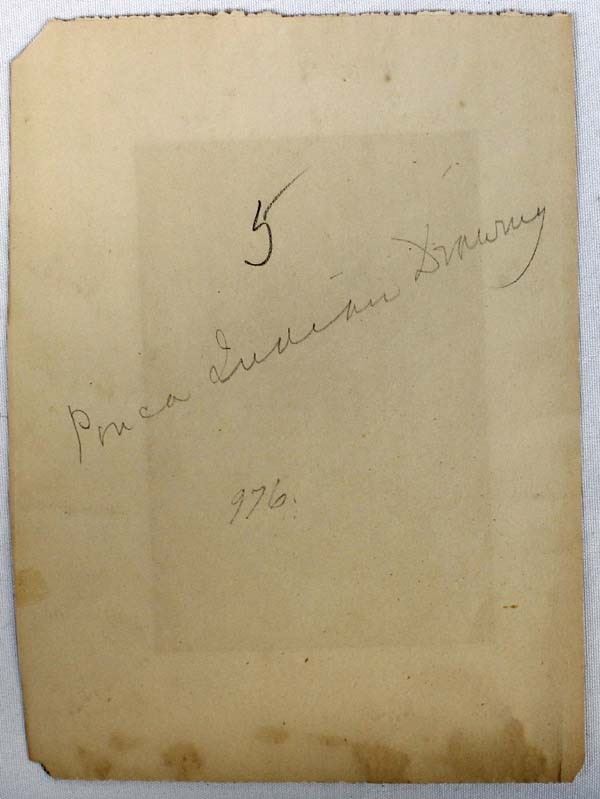 5
Ponca Indian Drawing
976.